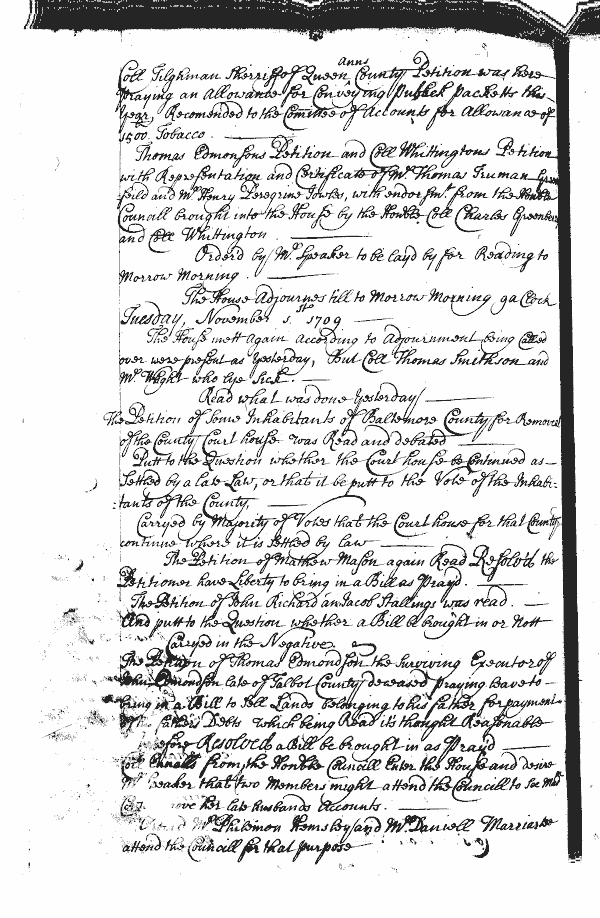 Anns
Coll Tilghman Sherriff of Queen County Petition was here
Praying an Allowance for Conveying Publick Packetts this
year, Recomended to the Comittee of Accounts for Allowance of
1500. Tobacco.
Thomas Edmonsons Petition and Coll Whittingtons Petition
with Representation and Certificate of Mr Thomas Truman Green
feild and Mr Henry Peregrine Jowles, with endorsmt. from the Honble
Councill brought into the House by the Honble Coll Charles Greenberry
and Coll Whittington
Orderd by Mr Speaker to be layd by for Reading to
Morrow Morning.
The House Adjournes till to Morrow Morning 9 a Clock
Tuesday, November 1.st 1709
The House mett again according to Adjournment being called
over were present as Yesterday, But Coll Thomas Smithson and
Mr. Wright who lye Sick.
Read what was done Yesterday
The Petition of Some Inhabitants of Baltemore County for Removal
of the County Court house was Read and debated
Putt to the Question whether the Court house be Continued as
Setled by a late Law, or that it be putt to the Vote of the Inhabi-
:tants of the County,
Carryed by Majority of Votes that the Court house for that County
continue where it is settled by law
The Petition of Mathew Mason again Read Resolvd the
Petitioner have Liberty to bring in a Bill as Prayd.
The Petition of John Richard an Jacob Stallings was read.
And putt to the Question whether a Bill be brought in or Nott
Carryed in the Negative
The Petition of Thomas Edmondson the Surviving Executor of
John Edmondson late of Talbot County deceased Praying Leave to
bring in a Bill to Sell Lands belonging to his father for payment
of Debts which being Read its thought Reasonable
Resolved a Bill be brought in as Prayd
Coll Ennalls from the Honble Councill Enter the House and desire
Mr Speaker that two Members might attend the Councill to See
her late husbands Accounts.
Mr Philemon Hemsley and Mr Daniell Marriartee
attend the Councill for that purpose